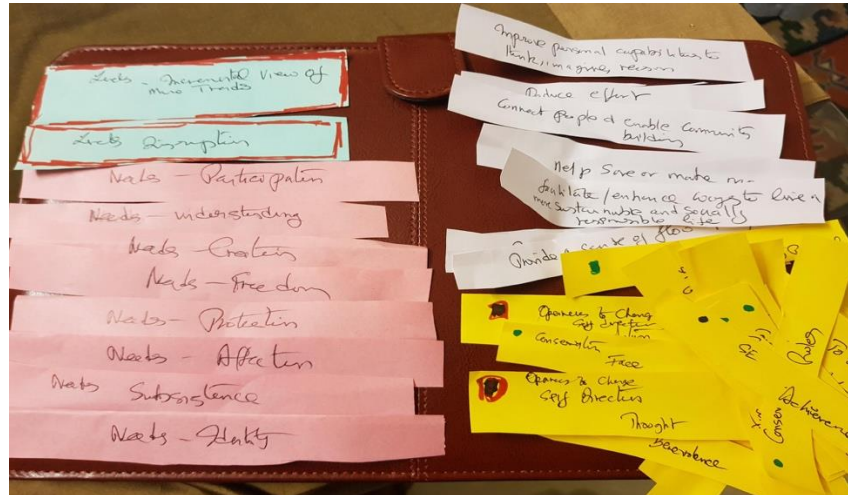 Incremental View of
Disruption
Needs - Participation
Needs - understanding
Needs - Creation
Needs - Freedom
Needs - Protection
Needs - Affection
Needs Subsistence
Needs - Identity
Improve personal capabilities to
think, imagine, reason
Reduce effort
Connect people & enable Community
building
Help Save or make
facilitate/enhance ways to live a
more sustainable and socially
responsible life
Provide a sense of flow
Openness to Change
Self Direction
Conservation
Face
Openness to Change
Self Direction
Thought
Benevolence
Rules